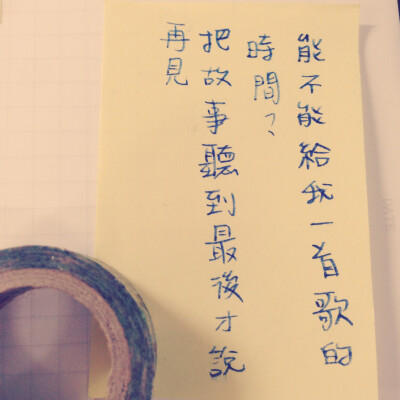 能不能給我一首歌的
時間？
把故事聽到最後才說
再見